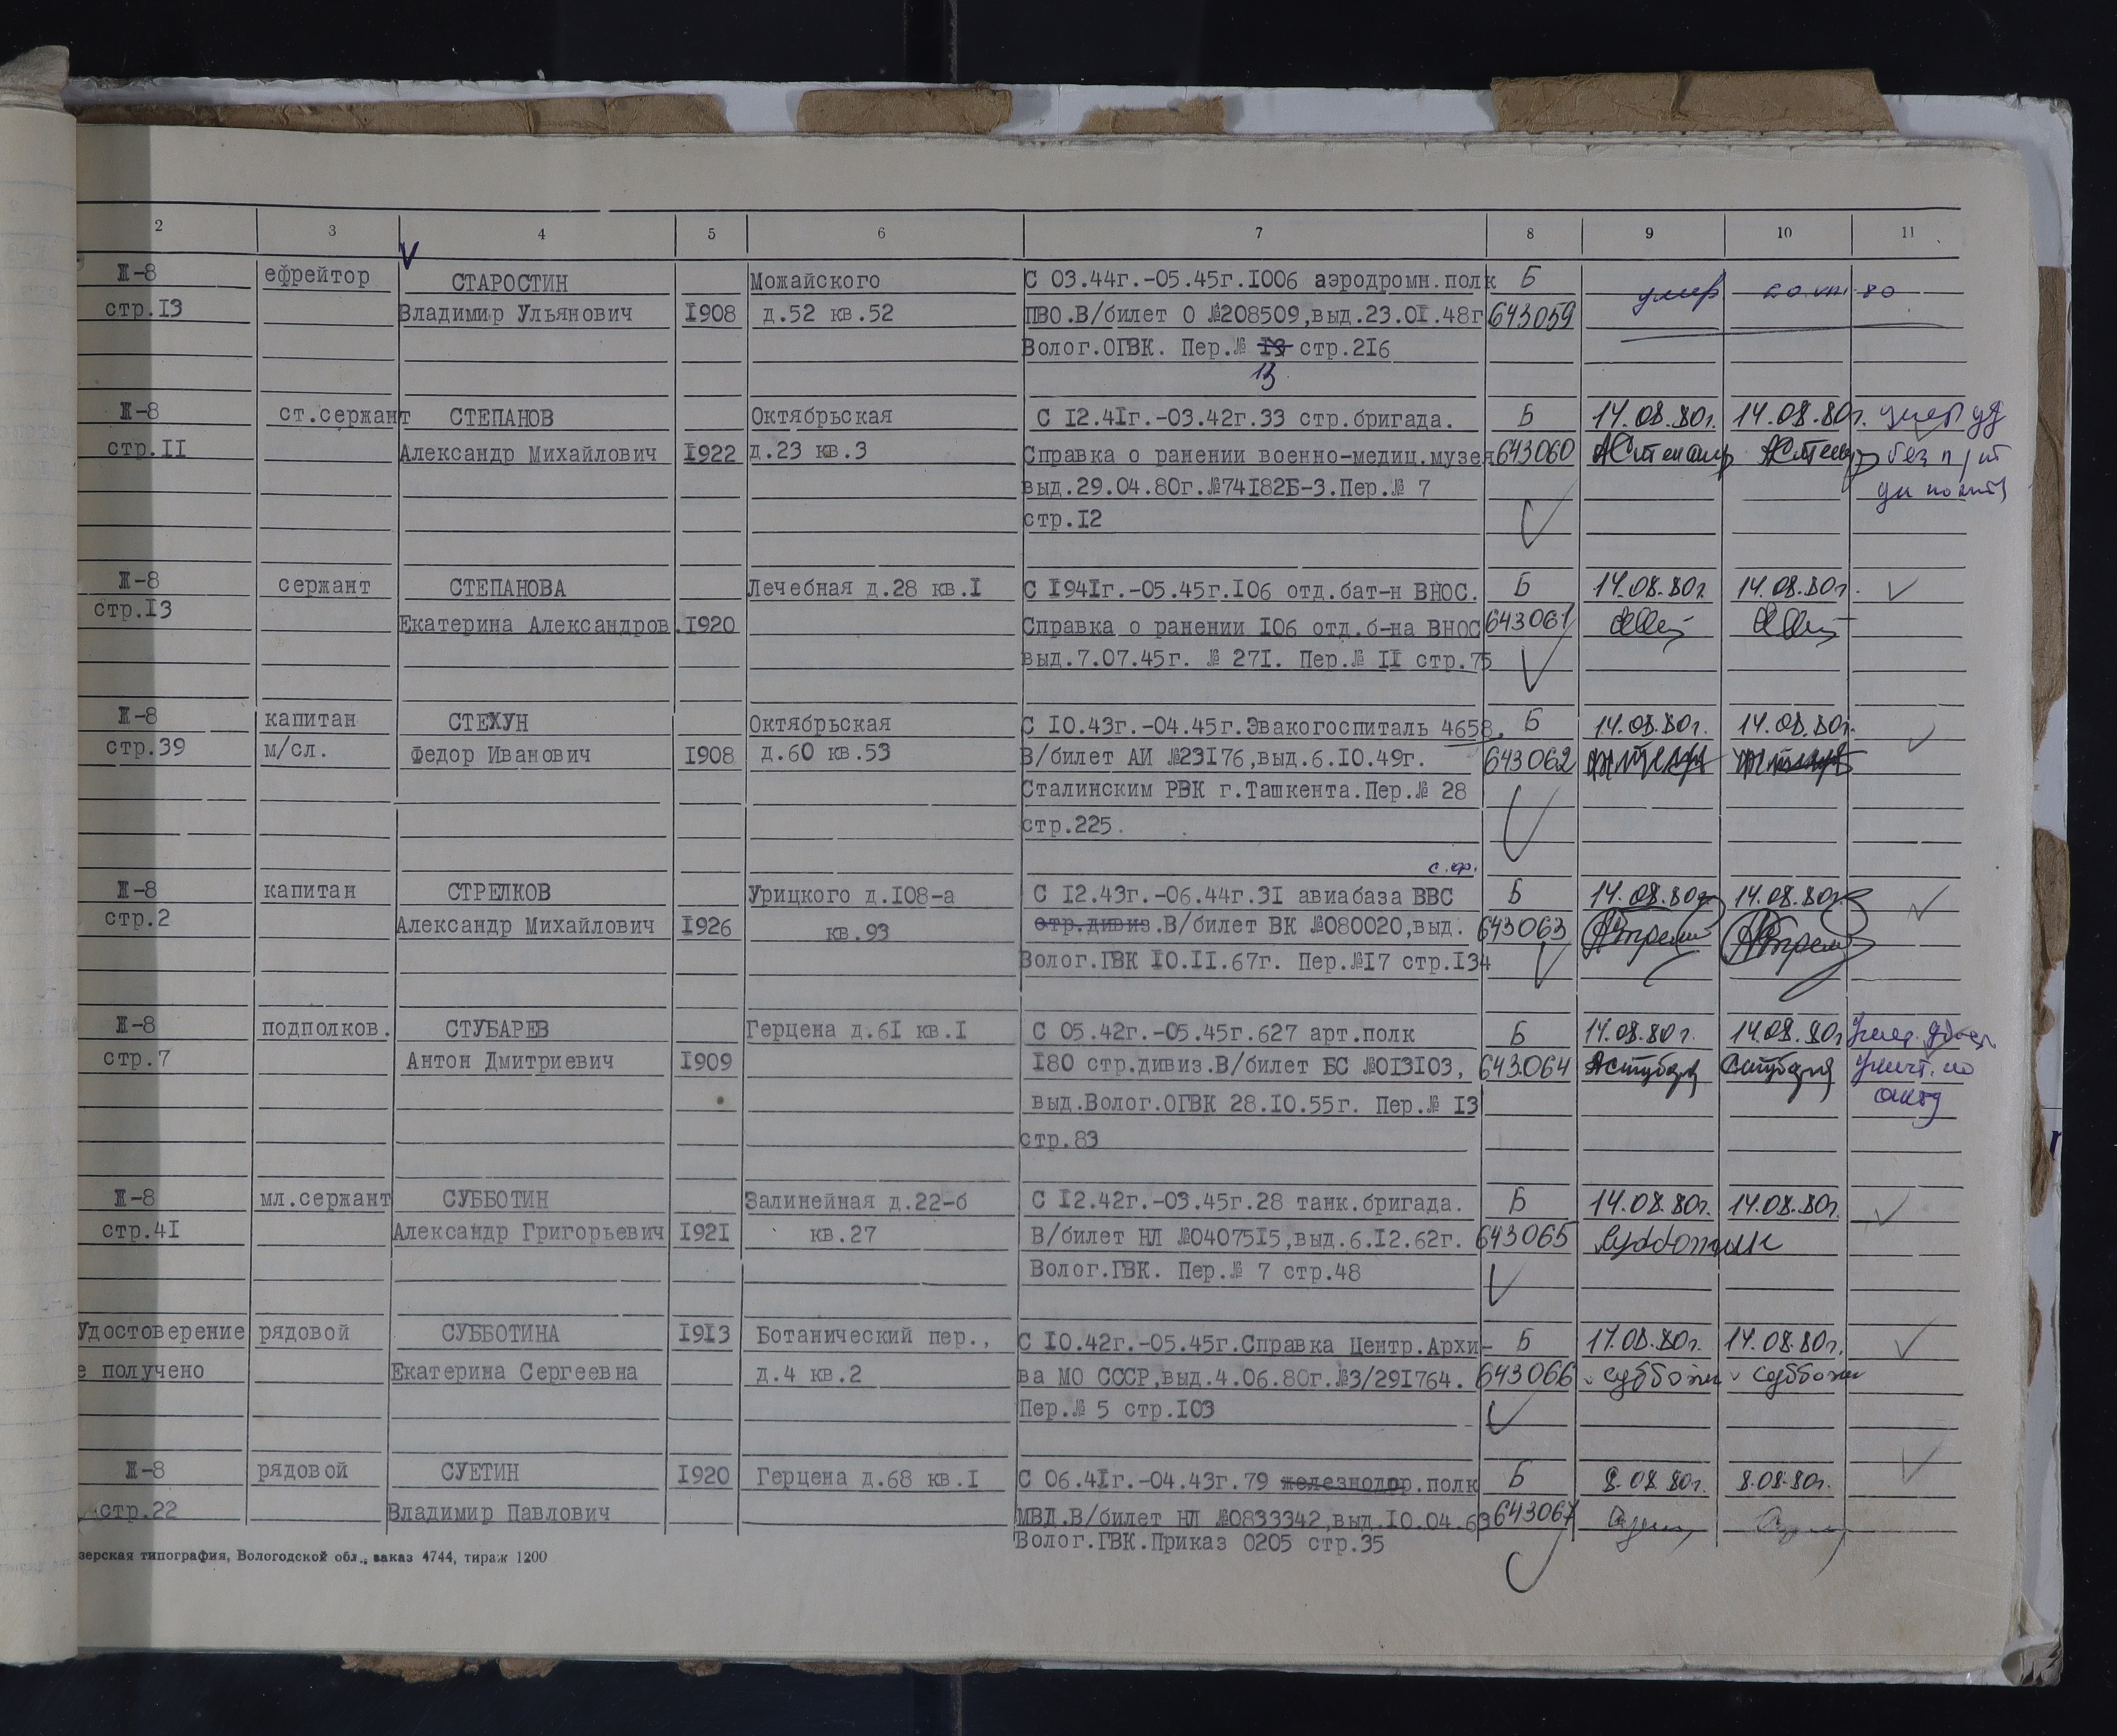 2 3 4 5 6 7 8 9 10 11
V
Ш-8 ефрейтор СТАРОСТИН Можайского С 03.44г.-05.45г.1006 аэродромн.полк Б умер
стр.13 Владимир Ульянович 1908 д.52 кв.52 ПВО.В/билет О №208509,выд.23.01.48г 643059
Волог.ОГВК. Пер.№ стр.216
13
Ш-8 ст.сержант СТЕПАНОВ Октябрьская С 12.41г.-03.42г.33 стр.бригада. Б 14.08.80г. 14.08.80г. умер уд
стр.11 Александр Михайлович 1922 д.23 кв.3 Справка о ранении военно-медиц.музея 643060 без
выд.29.04.80г.№74182Б-3.Пер.№ 7
стр.12
Ш-8 сержант СТЕПАНОВА Лечебная д.28 кв.1 С 1941г.-05.45г.106 отд.бат-н ВНОС. Б 14.08.80г 14.08.80г.
стр.13 Екатерина Александров. 1920 Справка о ранении 106 отд.б-на ВНОС 643061
выд.7.07.45г. № 271. Пер.№ 11 стр.75
Ш-8 капитан СТЕХУН Октябрьская С 10.43г.-04.45г.Эвакогоспиталь 4658. Б 14.08.80г. 14.08.80г.
стр.39 м/сл. Федор Иванович 1908 д.60 кв.53 В/билет АИ №23176,выд.6.10.49г. 643062
Сталинским РВК г.Ташкента.Пер.№ 28
стр.225.
с.ор.
Ш-8 капитан СТРЕЛКОВ Урицкого д.108-а С 12.43г.-06.44г.31 авиабаза ВВС Б 14.08.80г 14.08.80г.
стр.2 Александр Михайлович 1926 кв.93 стр.дивиз.В/билет ВК №080020,выд. 643063
Волог.ГВК 10.11.67г. Пер.№17 стр.134
Ш-8 подполков. СТУБАРЕВ Герцена д.61 кв.1 С 05.42г.-05.45г.627 арт.полк Б 14.08.80г. 14.08.80г умер.
стр.7 Антон Дмитриевич 1909 180 стр.дивиз.В/билет БС №013103, 643064 уничт. по
выд.Волог.ОГВК 28.10.55г. Пер.№ 13 акту
стр.83
Ш-8 мл.сержант СУББОТИН Залинейная д.22-б С 12.42г.-03.45г.28 танк.бригада. Б 14.08.80г. 14.08.80г.
стр.41 Александр Григорьевич 1921 кв.27 В/билет НЛ №0407515,выд.6.12.62г. 643065 Субботин
Волог.ГВК. Пер.№ 7 стр.48
Удостоверение рядовой СУББОТИНА 1913 Ботанический пер., С 10.42г.-05.45г.Справка Центр.Архи- Б 14.08.80г. 14.08.80г.
е получено Екатерина Сергеевна д.4 кв.2 ва МО СССР,выд.4.06.80г.№3/291764. 643066
Пер.№ 5 стр.103
Ш-8 рядовой СУЕТИН 1920 Герцена д.68 кв.1 С 06.41г.-04.43г.79 железнодор.полк Б 8.08.80г. 8.08.80г.
стр.22 Владимир Павлович МВД.В/билет НЛ №0833342,выд.10.04.63 643067
Волог.ГВК.Приказ 0205 стр.35
зерская типография, Вологодской обл., заказ 4744, тираж 1200